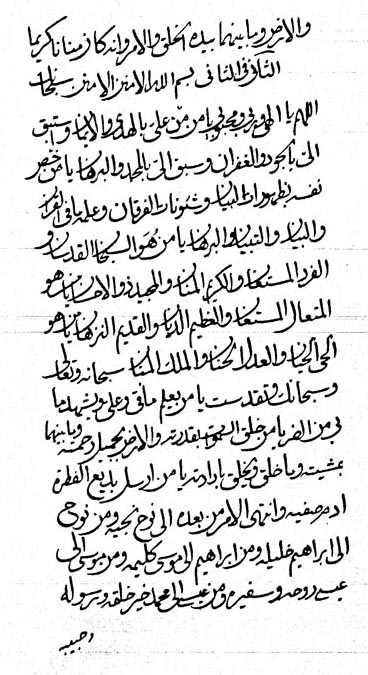 والارض وما بينهما بيده الخلق والامر وانه كان منانا كريما
الثاني في الثاني بسم الله الامنن الامنن سبحانك
اللهم يا الهي وربي ومحبوبي يا من من علي بالهدى والايمان واستبق
الي بالجود والغفران وسبق الي بالمجد والبرهان يا من خص
نفسه بظهورات البيان وشئونات الفرقان وعلمه ما في القران
والبيان والتبيان والبرهان يا من هو السبحان القدسان
الفرد المستعان والكريم المنان والمجد ذو الاحسان يا من هو
المتعال السلتان والعظيم الديان والقديم النزهان يا من هو
الحي الحيان والعدل الحنان والملك المنان سبحانه وتعالى
وسبحانك وتقدست يا من يعلم ما في وعلي ويشهد ما
بي من الضر يا من خلق السموات بقدرته والارض بجميل رحمته وما بينهما
بمشيته وما خلق ويخلق بارادته يا من ارسل بديع الفطرة
ادم صفيه وانتهى الامر من بعده الى نوح نجيه ومن نوح
الى ابراهيم خليله ومن ابراهيم الى موسى كليمه ومن موسى الى
عيسى روحه وسفيره ومن عيسى الى محمد خير خلقه ورسوله
وحبيبه